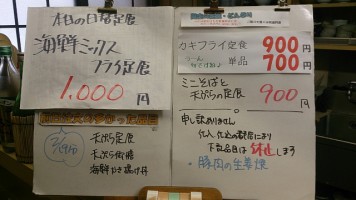 本日の日替定食
海鮮ミックス
フライ定食
1,000円
天ぷら定食
天ぷら御膳
海鮮かき揚げ丼
カキフライ定食 900円
単品 700円
ミニそばと
天ぷらの定食 900円
申し訳ありません
仕入、仕込の都合により
下記品目は休止します
・豚肉の生姜焼